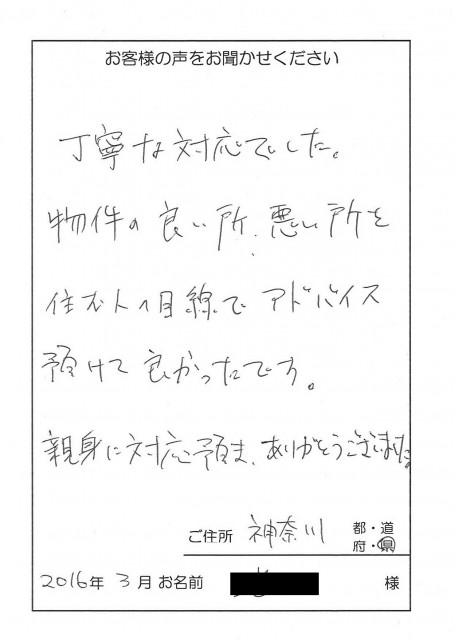 お客様の声をお聞かせください
丁寧な対応でした。
物件の良い所、悪い所を
住む人の目線でアドバイス
預けて良かったです。
親身に対応預ま、ありがとうございました。
ご住所 神奈川 都・道
府・県
2016年 3月 お名前 様